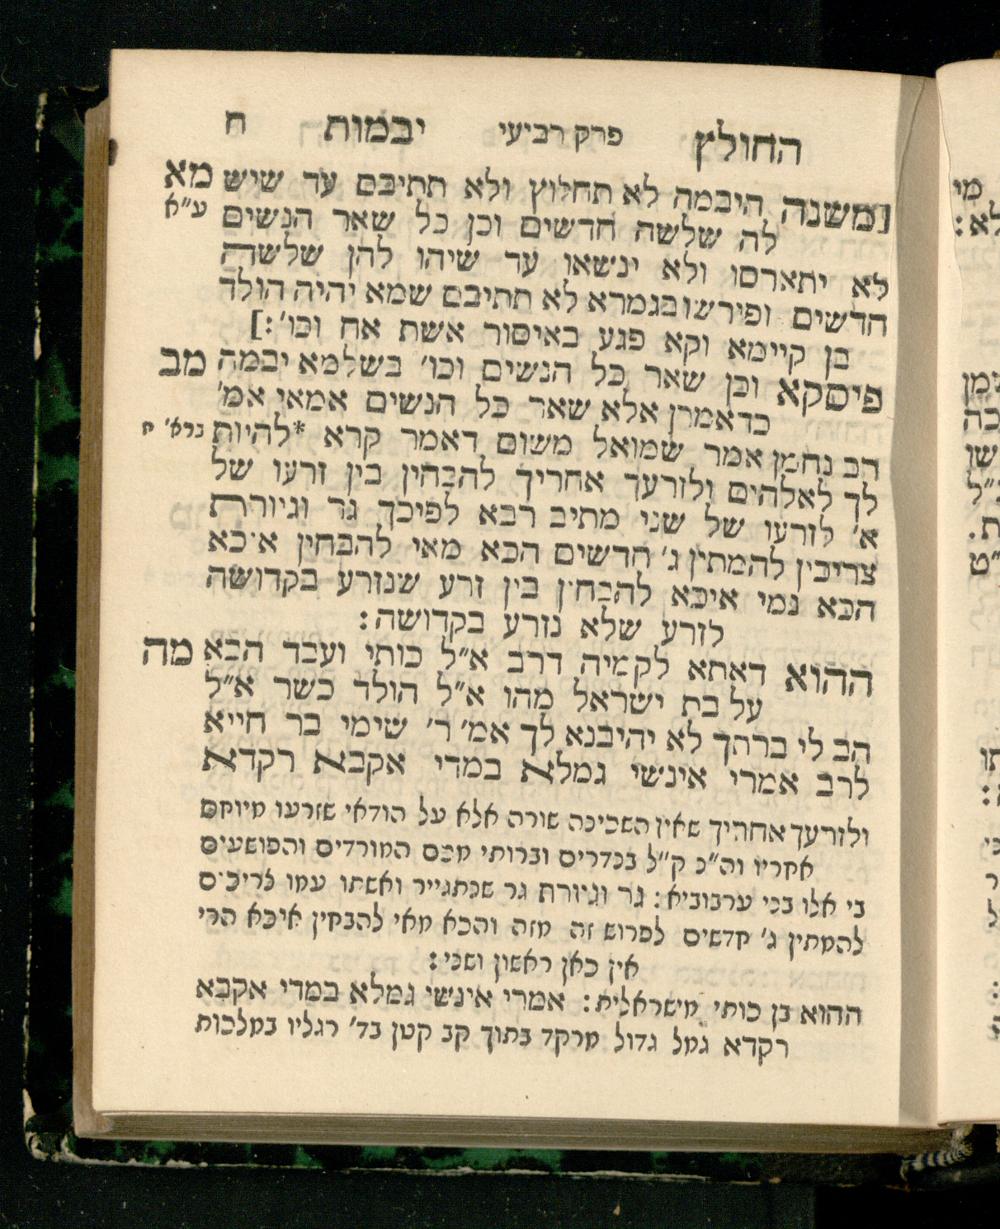 החולץ פרק רביעי יבמות ח
[משנה היבמה לא תחלוץ ולא תתיבם עד שיש מא
לה שלשה חדשים וכן כל שאר הנשים ע״א
לא יתארסו ולא ינשאו עד שיהו להן שלשה
חדשים ופירשו בגמרא לא תתיבם שמא יהיה הולד
בן קיימא וקא פגע באיסור אשת אח וכו׳:]
פיסקא וכן שאר כל הנשים וכו׳ בשלמא יבמה מב
כדאמרן אלא שאר כל הנשים אמאי אמ׳
רב נחמן אמר שמואל משום דאמר קרא *להיות ברא׳
לך לאלהים ולזרעך אחריך להבחין בין זרעו של
א׳ לזרעו של שני מתיב רבא לפיכך גר וגיורת
צריכין להמתין ג׳ חדשים הכא מאי להבחין איכא
הכא נמי איכא להבחין בין זרע שנזרע בקדושה
לזרע שלא נזרע בקדושה:
ההוא דאתא לקמיה דרב א״ל כותי ועבד הבא מה
על בת ישראל מהו א״ל הולד כשר א״ל
הב לי ברתך לא יהיבנא לך אמ׳ ר׳ שימי בר חייא
לרב אמרי אינשי גמלא במדי אקבא רקדא
ולזרעך אחריך שאין השכינה שורה אלא על הודאי שזרעו מיוחס
אחריו וה״כ ק״ל בנדרים וברותי מכם המורדים והפושעים
בי אלו בני ערבוביא: גר וגיורת גר שנתגייר ואשתו עמו צריכים
להמתין ג׳ חדשים לפרוש זה מזה והכא מאי להבחין איכא הרי
אין כאן ראשון ושני:
ההוא בן כותי מישראלית: אמרי אינשי גמלא במדי אקבא
רקדא גמל גדול מרקד בתוך קב קטן בד׳ רגליו במלכות